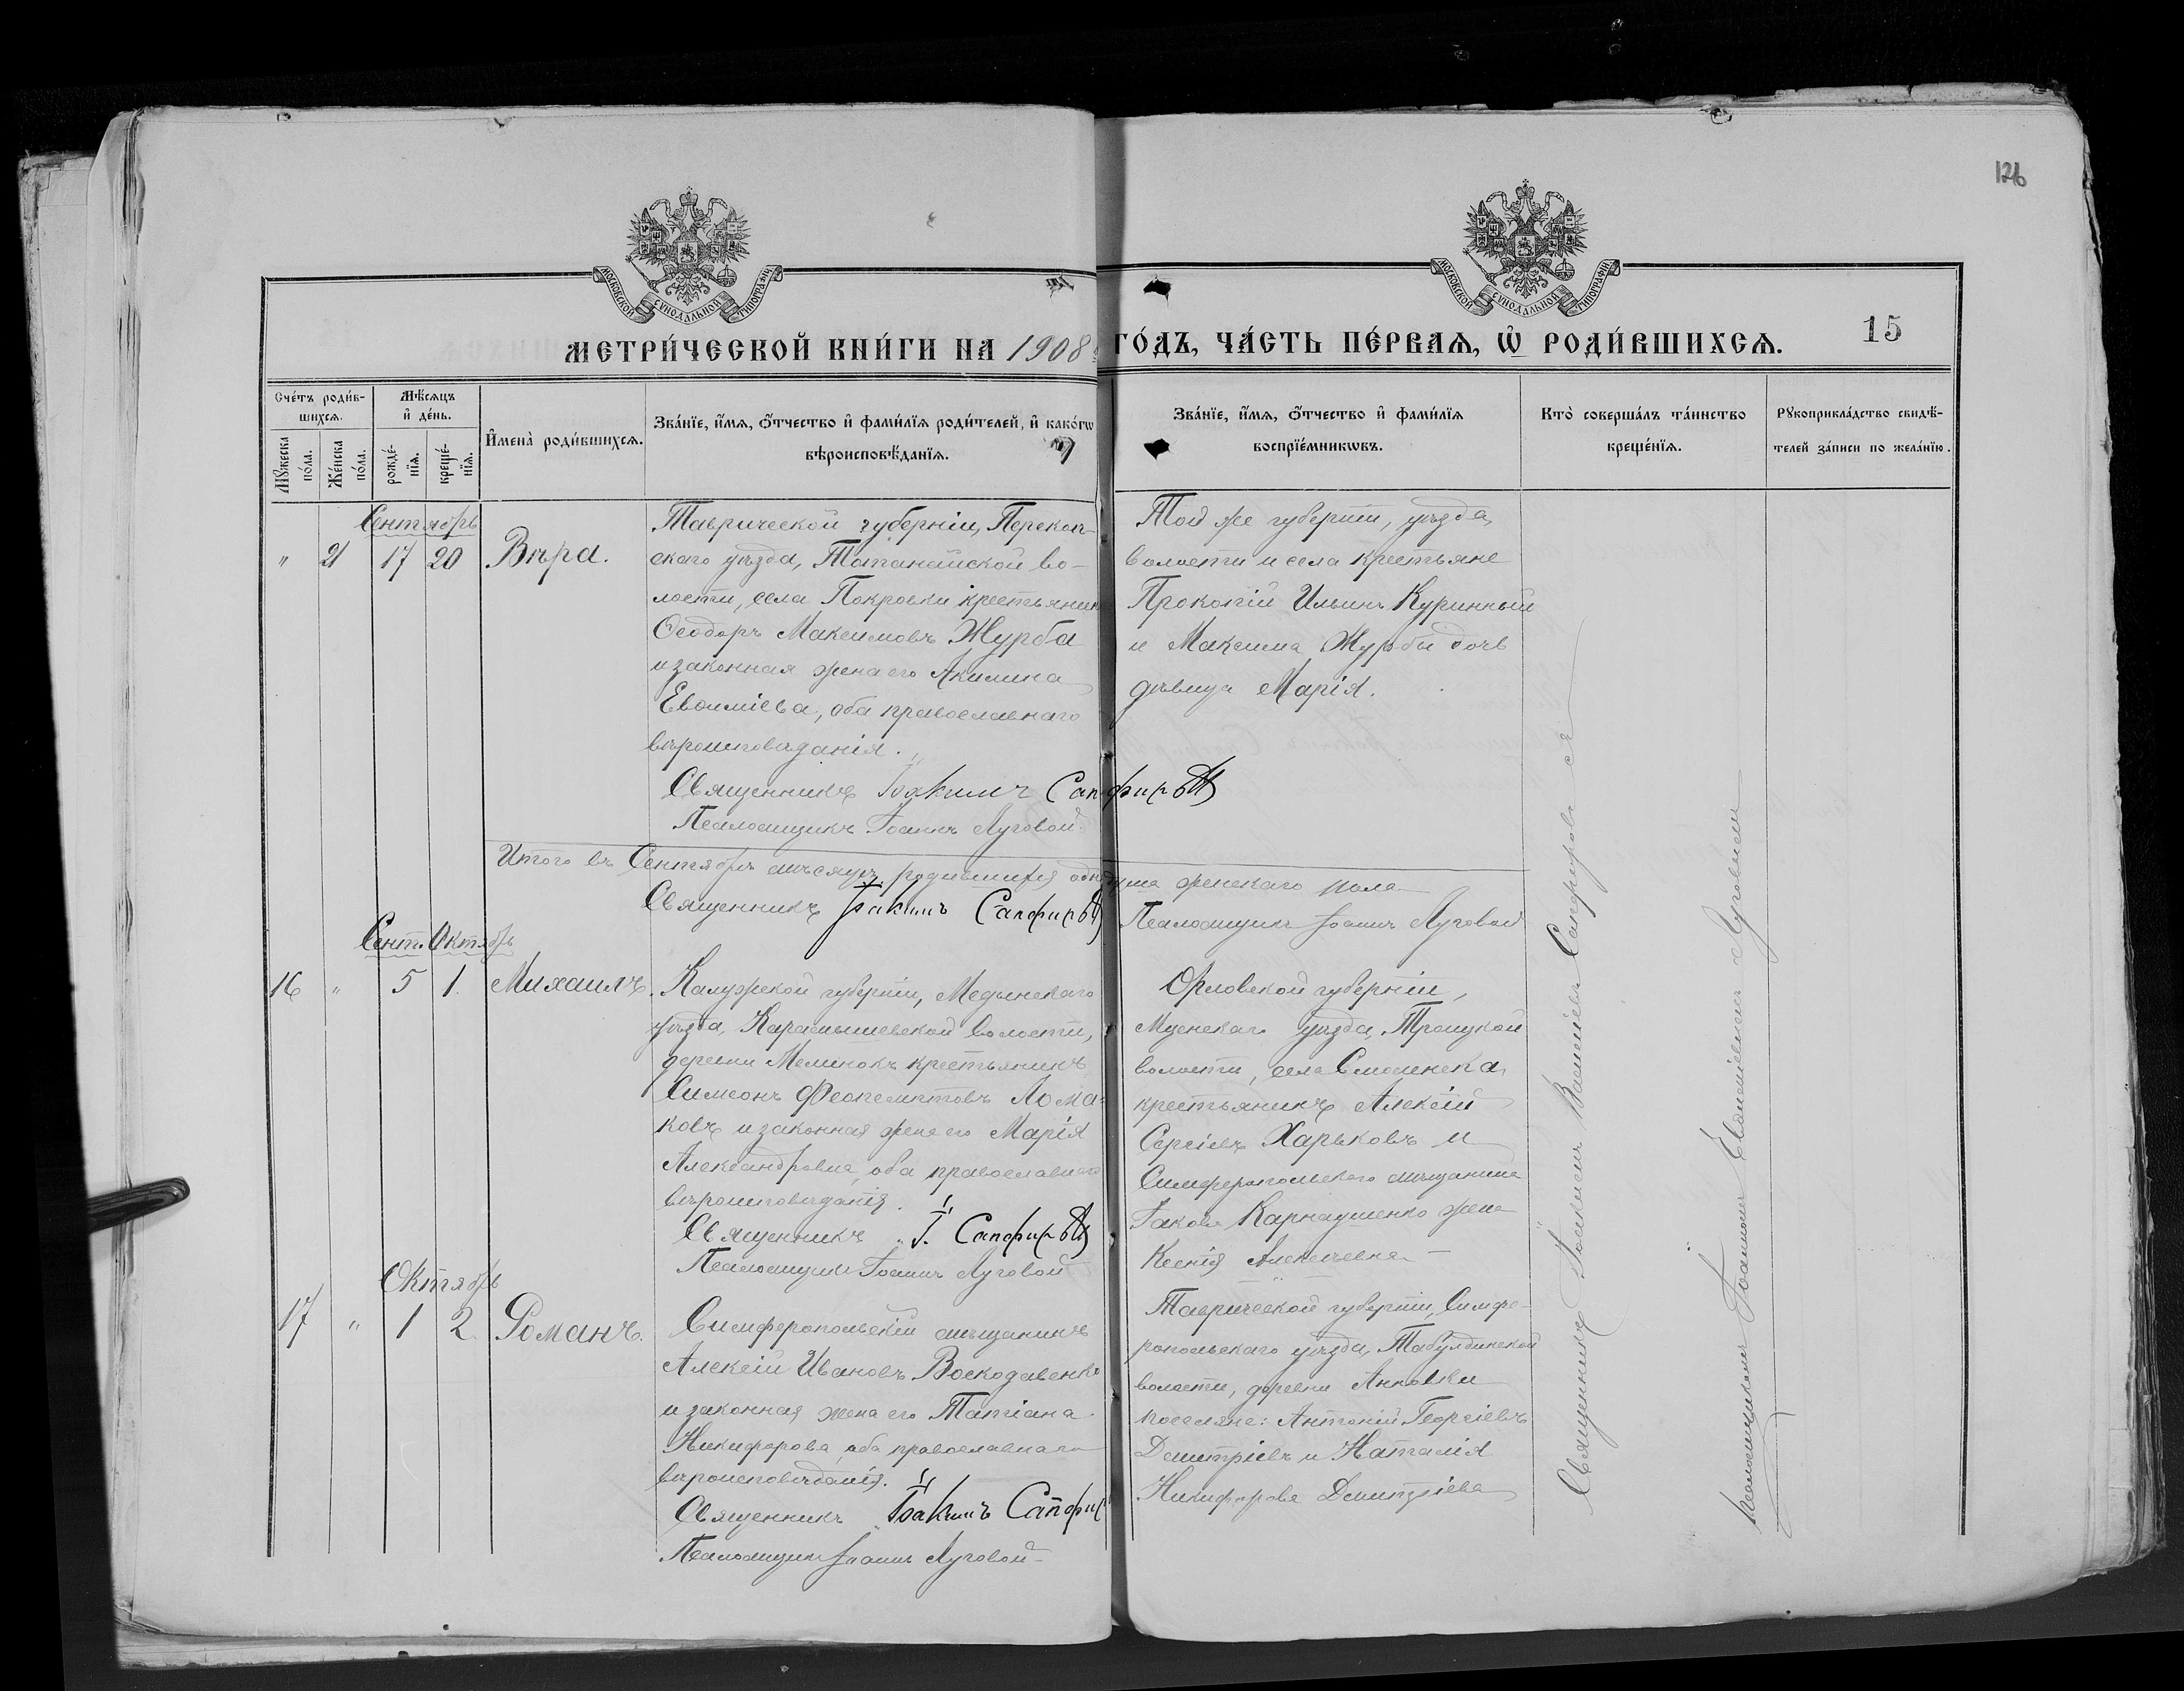 126
МОСКОВСКОЙ СѴНОДАЛЬНОЙ ТИПОГРАФІИ
МОСКОВСКОЙ СѴНОДАЛЬНОЙ ТИПОГРАФІИ
МЕТРИ́ЧЕСКОЙ КНИ́ГИ НА 1908 ГО́ДЪ, ЧА́СТЬ ПЕ́РВАѦ, Ѡ҆ РОДИ́ВШИХСѦ.
15
Сче́тъ роди́в-
шихсѧ.
Мѣ́сѧцъ
и҆ де́нь.
Мꙋ́жеска
по́ла.
Же́нска
по́ла.
рожде́-
нїѧ.
креще́-
нїѧ.
И҆мена̀ роди́вшихсѧ.
Зва́нїе, и҆́мѧ, ѻ҆́тчество и҆ фами́лїѧ роди́телей, и҆ како́гѡ
вѣроисповѣ́данїѧ.
Зва́нїе, и҆́мѧ, ѻ҆́тчество и҆ фами́лїѧ
воспрїе́мникѡвъ.
Кто̀ соверша́лъ та́инство
креще́нїѧ.
Рꙋкоприкла́дство свидѣ́-
телей за́писи по жела́нїю.
Сентябрь
" 21 17 20 Вѣра.
Таврической губерніи, Перекоп-
скаго уѣзда, Тотанайской во-
лости, села Покровки крестьянин
Ѳеодоръ Максимовъ Журба
и законная жена его Акилина
Евѳиміева, оба православнаго
вѣроисповѣданія.
Священникъ Іоакимъ Сапфировъ
Псаломщикъ Іоаннъ Луговой
Той же губерніи, уѣзда,
волости и села крестьяне
Прокопій Ильинъ Куринный
и Максима Журбы дочь
дѣвица Марія.
Итого въ Сентябрѣ мѣсяцѣ родившихся одна душа женскаго пола
Священникъ Іоакимъ Сапфировъ
Псаломщикъ Іоаннъ Луговой
Сент. Октябрь
16 " 5 1. Михаилъ.
Калужской губерніи, Медынскаго
уѣзда, Карамышевской волости,
деревни Мелинокъ крестьянинъ
Симеонъ Ѳеопемптовъ Лома-
ковъ и законная жена его Марія
Александровна, оба православнаго
вѣроисповѣданія.
Священникъ І. Сапфировъ
Псаломщикъ Іоаннъ Луговой
Орловской губерніи,
Мценскаго уѣзда, Троицкой
волости, села Смоленска
крестьянинъ Алексій
Сергіевъ Харьковъ и
Симферопольскаго мѣщанина
Іакова Карнаушенко жена
Ксенія Алексѣевна
Октябрь
17 " 1 2 Романъ.
Симферопольскій мѣщанинъ
Алексій Ивановъ Воскодавенко
и законная жена его Татіана
Никифорова, оба православнаго
вѣроисповѣданія.
Священникъ Іоакимъ Сапфир
Псаломщикъ Іоаннъ Луговой
Таврической губерніи, Симфе-
ропольскаго уѣзда, Табулдинской
волости, деревни Анновки
поселяне: Антоній Георгіевъ
Димитріевъ и Наталія
Никифорова Димитріева
Священникъ Іоакимъ Васильевъ Сапфировъ
Псаломщикомъ Іоанномъ Евѳиміевымъ Луговымъ